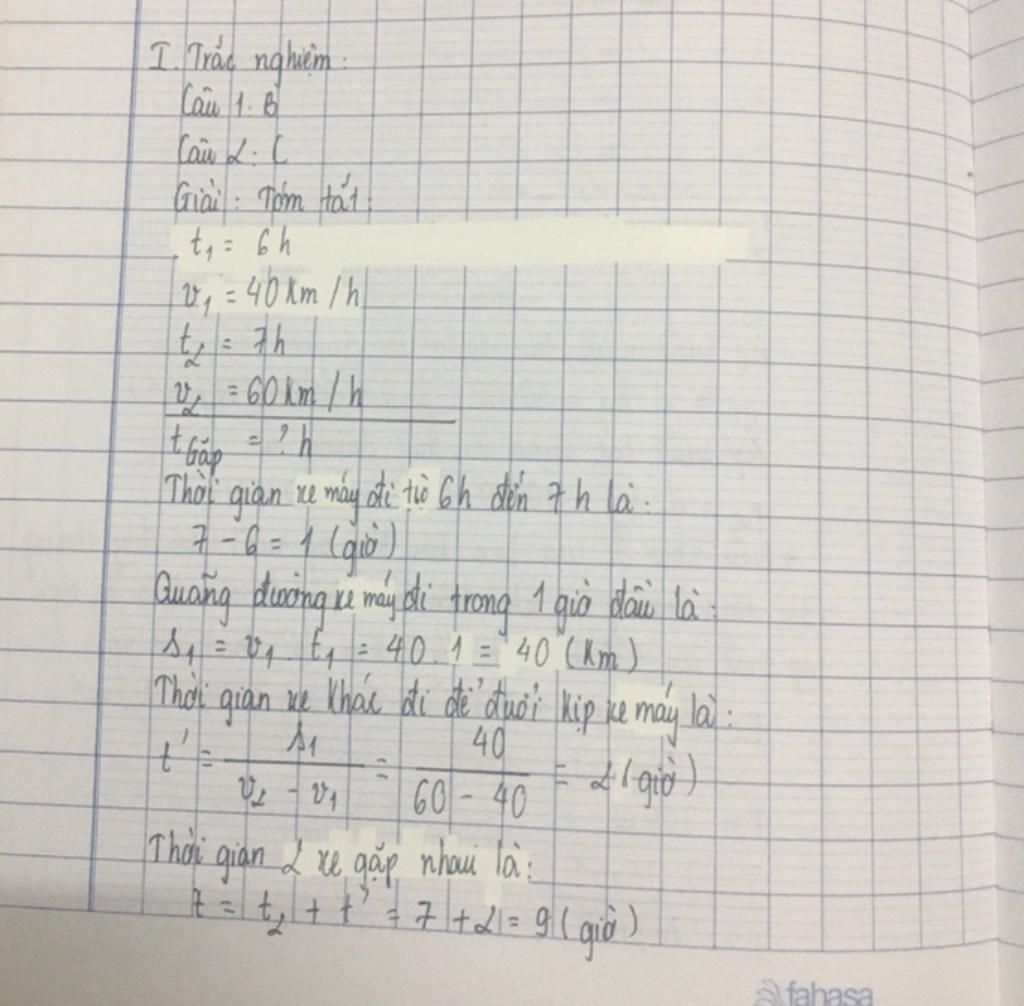 I. Trắc nghiệm:
Câu 1. B
Câu 2: C
Giải: Tóm tắt:
t₁ = 6h
v₁ = 40 Km/h
t₂ = 7h
v₂ = 60 Km/h
t Gặp = ? h
Thời gian xe máy đi từ 6h đến 7h là:
7 - 6 = 1 (giờ)
Quãng đường xe máy đi trong 1 giờ đầu là:
s₁ = v₁ . t₁ = 40 . 1 = 40 (Km)
Thời gian xe khác đi để đuổi kịp xe máy là:
t' = s₁ / (v₂ - v₁) = 40 / (60 - 40) = 2 (giờ)
Thời gian 2 xe gặp nhau là:
7 = t₂ + t' = 7 + 2 = 9 (giờ)
fahasa